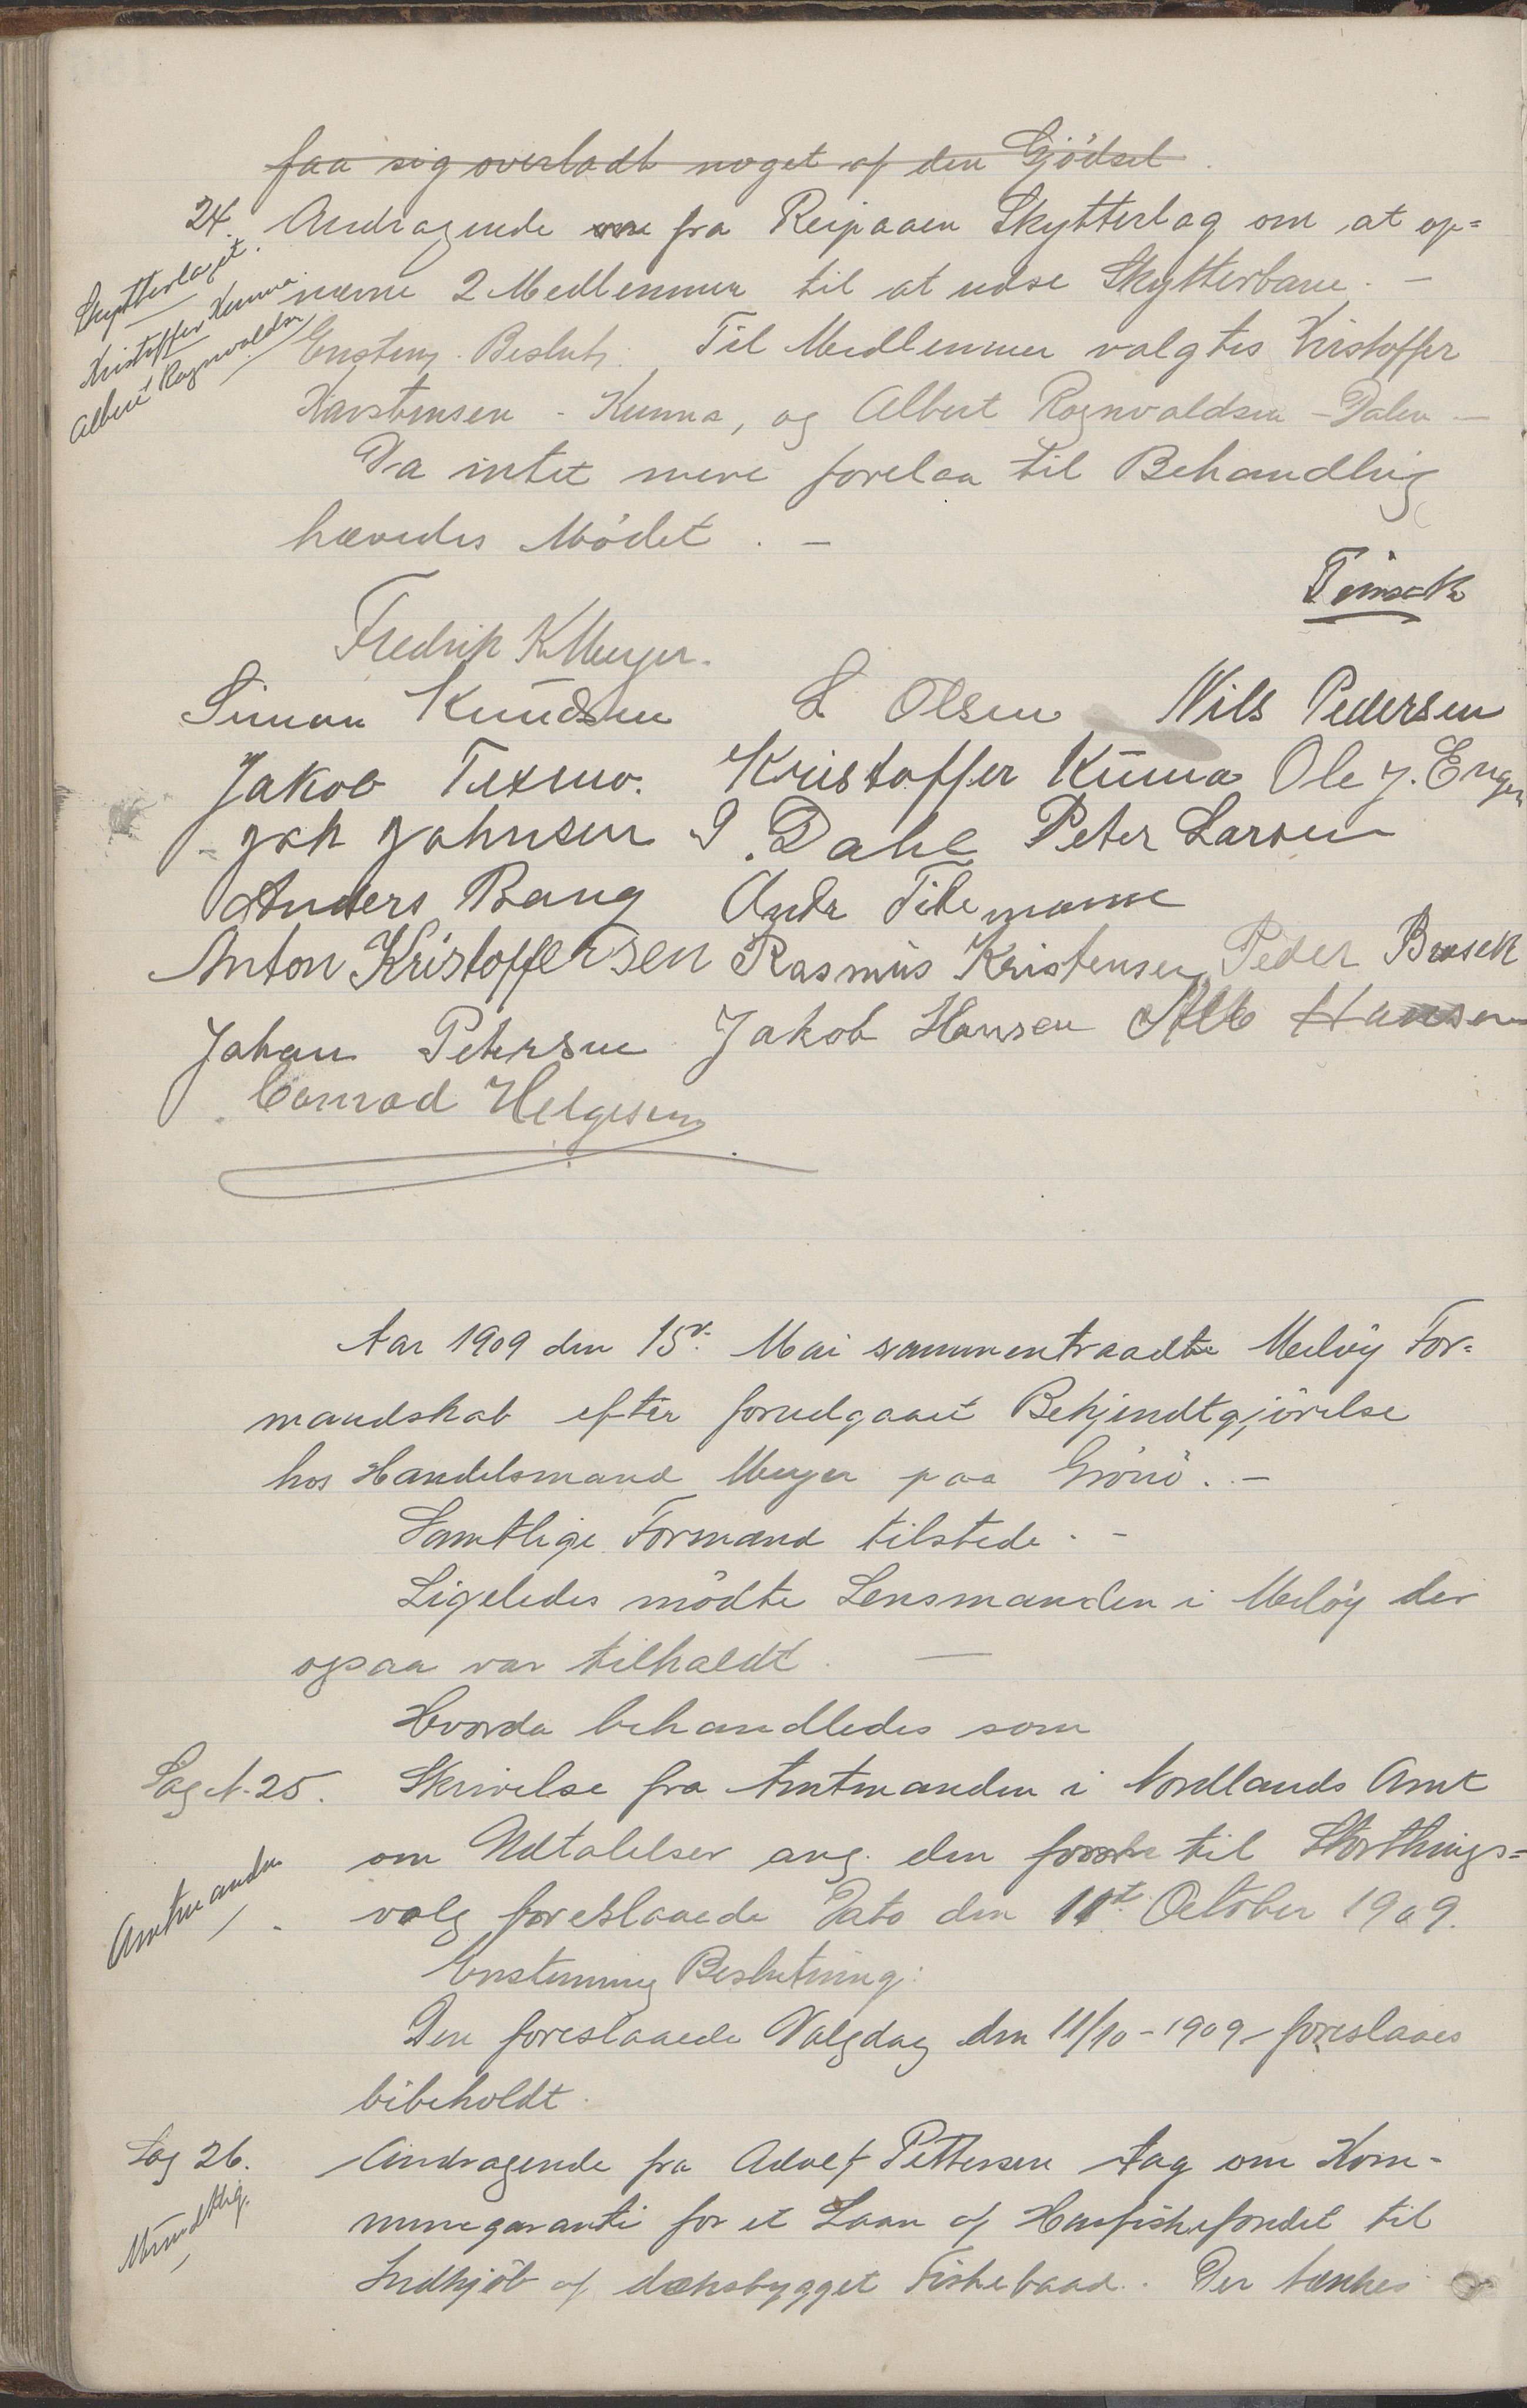 faa sig overladt noget af den Gjödsel.
24. Andragende fra Reipaaen Skytterlag om at op=
Skytterlaget.
nævne 2 Medlemmer til at udse Skytterbane. –
Kristoffer Kunna
Albert Ragnvaldsn
Enstem. Beslutn. Til Medlemmer valgtes Kristoffer
Karstensen - Kunna, og Albert Ragnvaldsen - Dalen –
Da intet mere forelaa til Behandling
hævedes Mödet. –
Fredrik K Meyer.
Simon Knudsen L Olsen Nils Pedersen
Jakob Texmo. Kristoffer Kunna Ole J. Engen
Joh Johnsen J. Dahl Peter Larsen
Anders Bang Andr Tilemann
Anton Kristoffersen Rasmus Kristensen Peder Brusek
Johan Petersen Jakob Hansen Alb Hansen
Conrad Helgesen
Aar 1909 den 15de Mai sammentraadte Melöy For=
mandskab efter forudgaaet Bekjendtgjörelse
hos Handelsmand Meyer paa Grönö. –
Samtlige Formænd tilstede. –
Ligeledes mödte Lensmanden i Melöy der
ogsaa var tilkaldt. –
Hvorda behandledes som
Sag N. 25. Skrivelse fra Amtmanden i Nordlands Amt
om Udtalelser ang. den til Storthings=
Amtmanden
valg foreslaaede Dato den 11te October 1909.
Enstemmig Beslutning:
Den foreslaaede Valgdag den 11/10 - 1909 foreslaaes
bibeholdt.
Sag 26. Andragende fra Adolf Pettersen Aag om Kom-
Mundtlig.
munegaranti for et Laan af Havfiskefondet til
Indkjöb af dæksbygget Fiskebaad. Der tænkes